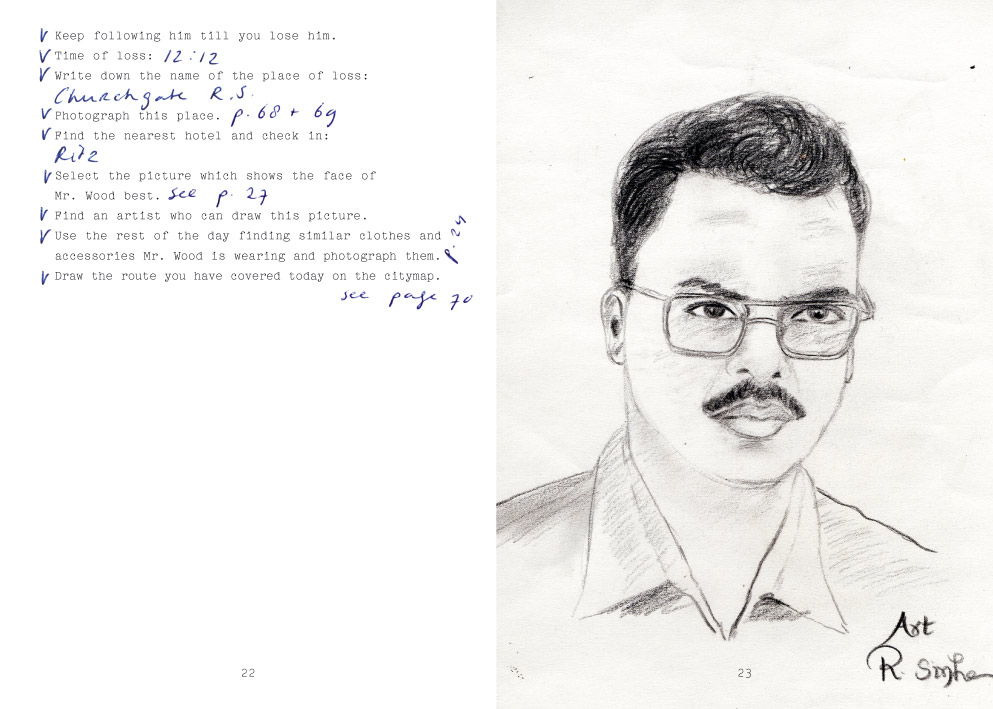 V Keep following him till you lose him.
V Time of loss: 12:12
V Write down the name of the place of loss:
Churchgate R.S.
V Photograph this place. p. 68 + 69
V Find the nearest hotel and check in:
Ritz
V Select the picture which shows the face of
Mr. Wood best. see p. 27
V Find an artist who can draw this picture.
V Use the rest of the day finding similar clothes and
accessories Mr. Wood is wearing and photograph them. p. 24
V Draw the route you have covered today on the citymap.
see page 70
22
Art
R. Sinha
23